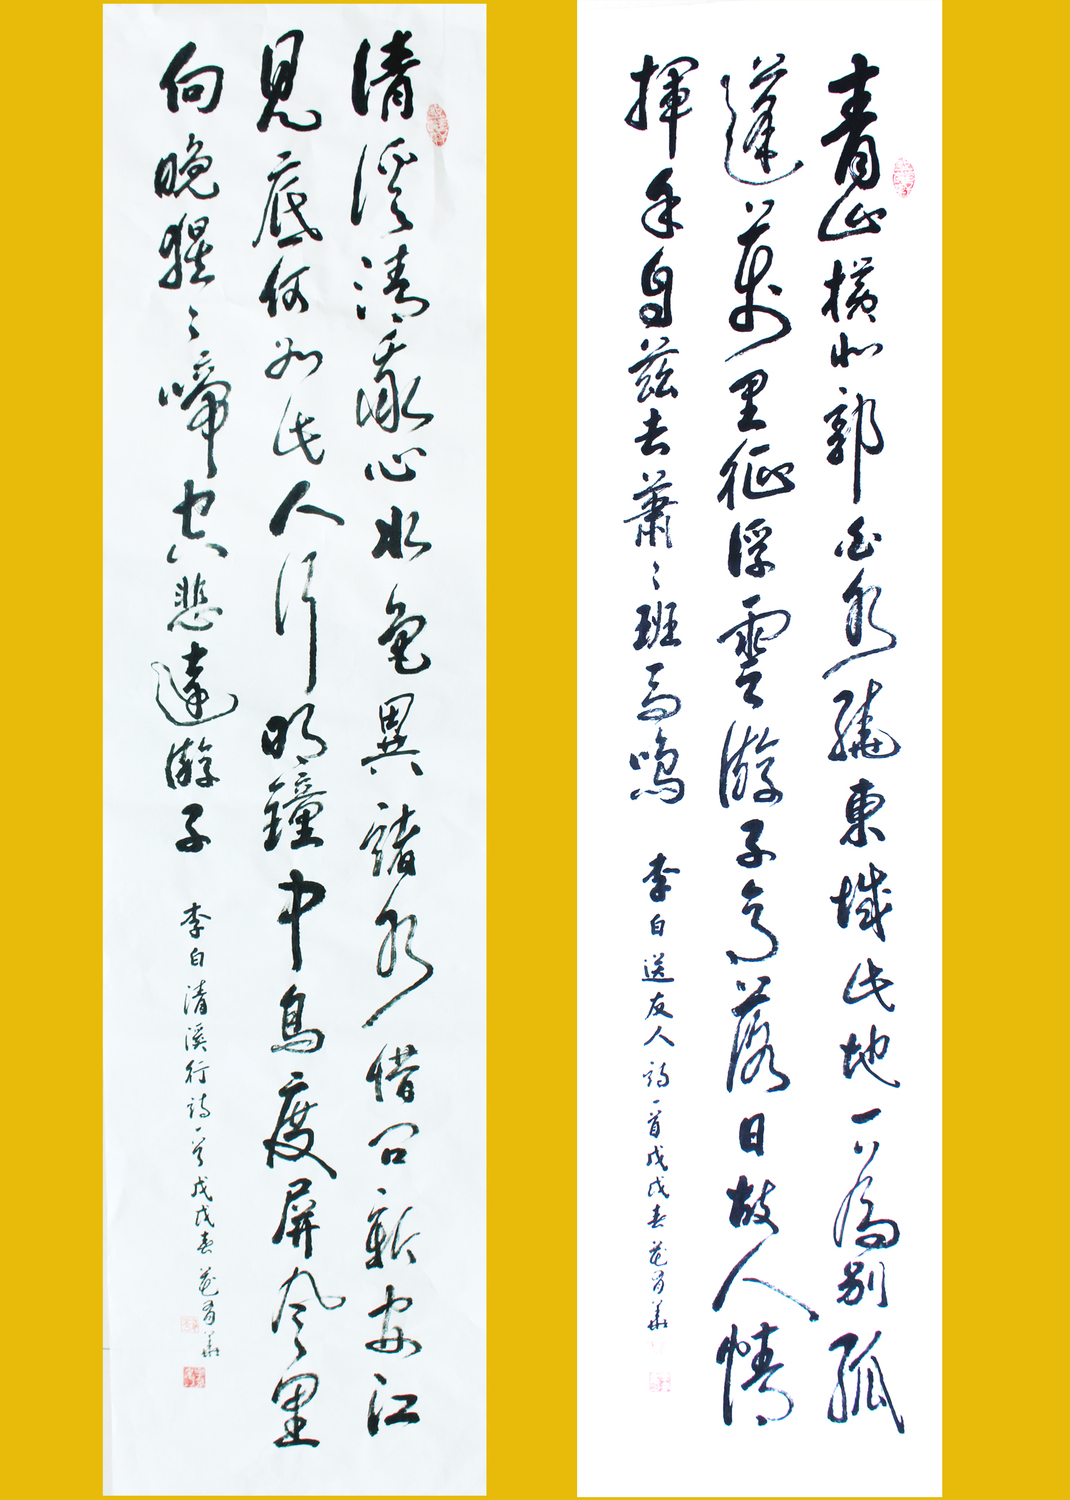 青山橫北郭白水繞東城此地一為別孤
蓬萬里征浮雲游子意落日故人情
揮手自茲去蕭々班馬鳴 李白送友人詩一首戊戌春
清溪清我心水色異諸水借问新安江
見底何如此人行明鏡中鳥度屏風里
向晚猩々啼空悲遠游子 李白清溪行詩一首戊戌春